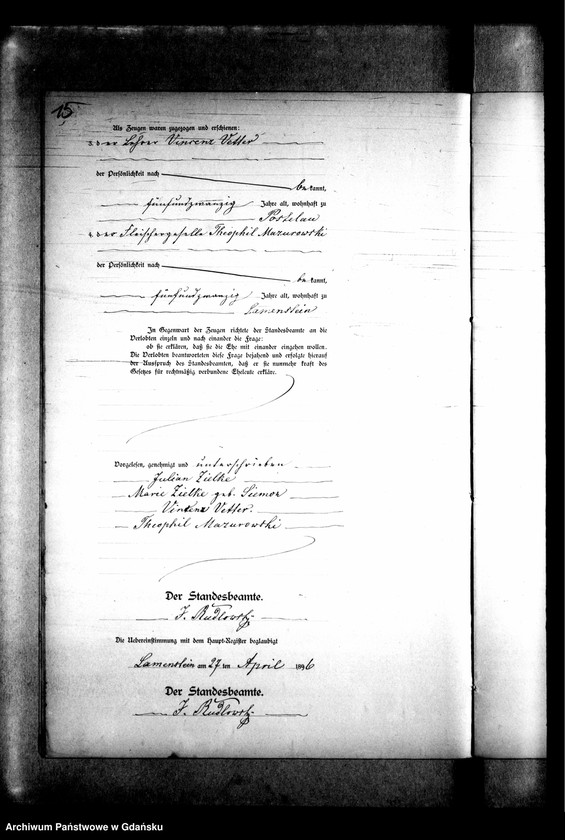 15
Als Zeugen waren zugezogen und erschienen:
3. der Lehrer Vincenz Vetter
der Persönlichkeit nach
be kannt,
fünfundzwanzig Jahre alt, wohnhaft zu
Postelau
4. der Fleischergeselle Theophil Mazurowski
der Persönlichkeit nach
be kannt,
fünfundzwanzig Jahre alt, wohnhaft zu
Lamenstein
In Gegenwart der Zeugen richtete der Standesbeamte an die
Verlobten einzeln und nach einander die Frage:
ob sie erklären, daß sie die Ehe mit einander eingehen wollen.
Die Verlobten beantworteten diese Frage bejahend und erfolgte hierauf
der Ausspruch des Standesbeamten, daß er sie nunmehr kraft des
Gesetzes für rechtmäßig verbundene Eheleute erkläre.
Vorgelesen, genehmigt und unterschrieben
Julian Zielke
Marie Zielke geb.
Vincenz Vetter.
Theophil Mazurowski
Der Standesbeamte.
Die Uebereinstimmung mit dem Haupt-Register beglaubigt
Lamenstein am 27 ten April 1896
Der Standesbeamte.
Archiwum Państwowe w Gdańsku